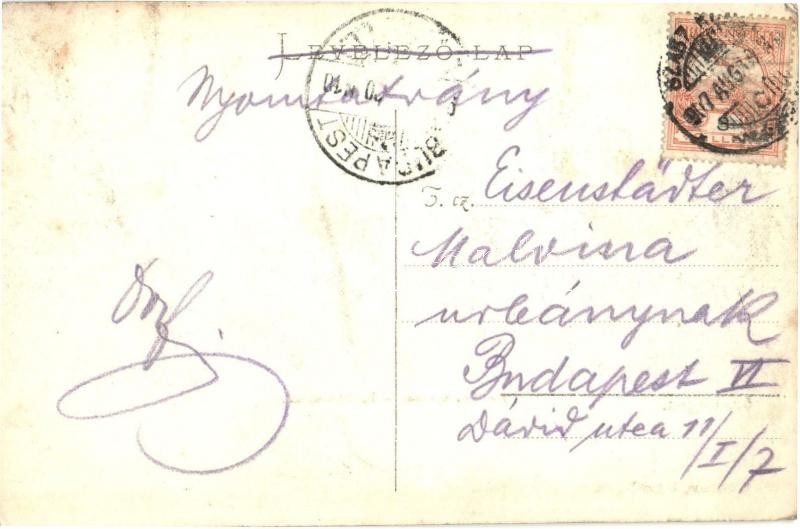 LEVELEZŐ-LAP
Nyomtatvány
BUDAPEST
T. cz.
Eisenstädter
Malvina
urleánynak
Budapest VI
Dávid utca 11/I/7